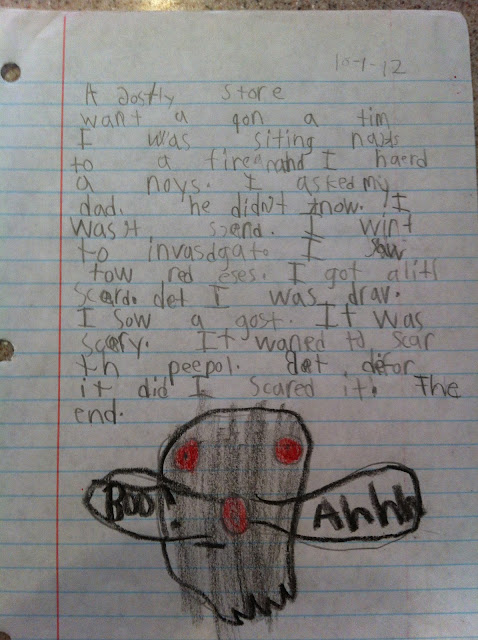 10-1-12
A gostly store
want a qon a tim
I was siting nads
to a firearand I haerd
a noys. I asked my
dad. he didn't know. I
wasn't scerd. I wint
to invasdgato I saw
tow red eses. I got alitl
scard. det I was drav.
I sow a gost. It was
scary. It waned to scar
th peepol. det defor
it did I scared it. The
end.
Boo
Ahhhh